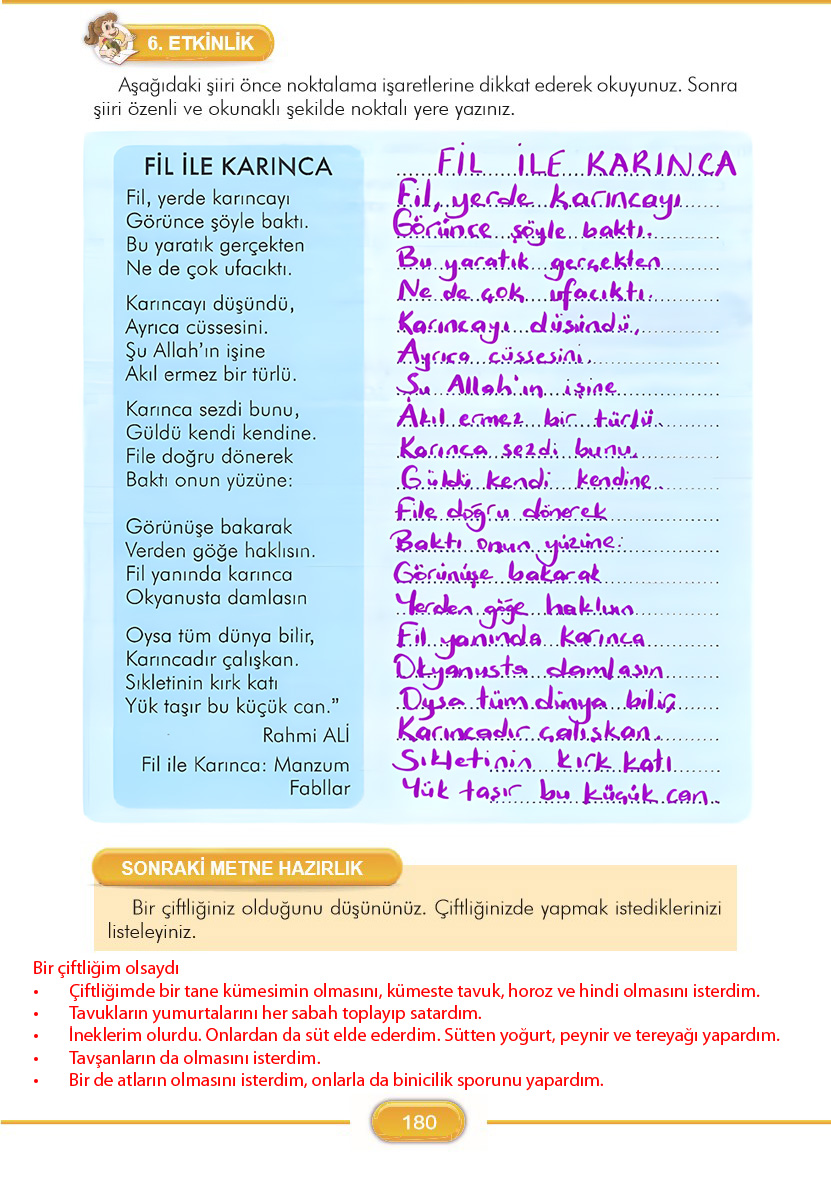 6. ETKİNLİK
Aşağıdaki şiiri önce noktalama işaretlerine dikkat ederek okuyunuz. Sonra
şiiri özenli ve okunaklı şekilde noktalı yere yazınız.
FİL İLE KARINCA
Fil, yerde karıncayı
Görünce şöyle baktı.
Bu yaratık gerçekten
Ne de çok ufacıktı.
Karıncayı düşündü,
Ayrıca cüssesini.
Şu Allah’ın işine
Akıl ermez bir türlü.
Karınca sezdi bunu,
Güldü kendi kendine.
File doğru dönerek
Baktı onun yüzüne:
Görünüşe bakarak
Verden göğe haklısın.
Fil yanında karınca
Okyanusta damlasın
Oysa tüm dünya bilir,
Karıncadır çalışkan.
Sıkletinin kırk katı
Yük taşır bu küçük can.”
Rahmi ALİ
Fil ile Karınca: Manzum
Fabllar
FİL İLE KARINCA
Fil, yerde karıncayı
Görünce şöyle baktı.
Bu yaratık gerçekten
Ne de çok ufacıktı.
Karıncayı düsündü,
Ayrıca cüssesini.
Su Allah'ın işine
Akıl ermez bir türlü.
Karınca sezdi bunu,
Güldü kendi kendine.
File doğru dönerek
Baktı onun yüzüne:
Görünüşe bakarak
Yerden göğe
Fil yanında karınca
Okyanusta damlasın
Oysa tüm dünya bilir,
Karıncadır çalışkan.
Sıkletinin kırk katı
Yük taşır bu küçük can.
SONRAKİ METNE HAZIRLIK
Bir çiftliğiniz olduğunu düşününüz. Çiftliğinizde yapmak istediklerinizi
listeleyiniz.
Bir çiftliğim olsaydı
• Çiftliğimde bir tane kümesimin olmasını, kümeste tavuk, horoz ve hindi olmasını isterdim.
• Tavukların yumurtalarını her sabah toplayıp satardım.
• İneklerim olurdu. Onlardan da süt elde ederdim. Sütten yoğurt, peynir ve tereyağı yapardım.
• Tavşanların da olmasını isterdim.
• Bir de atların olmasını isterdim, onlarla da binicilik sporunu yapardım.
180